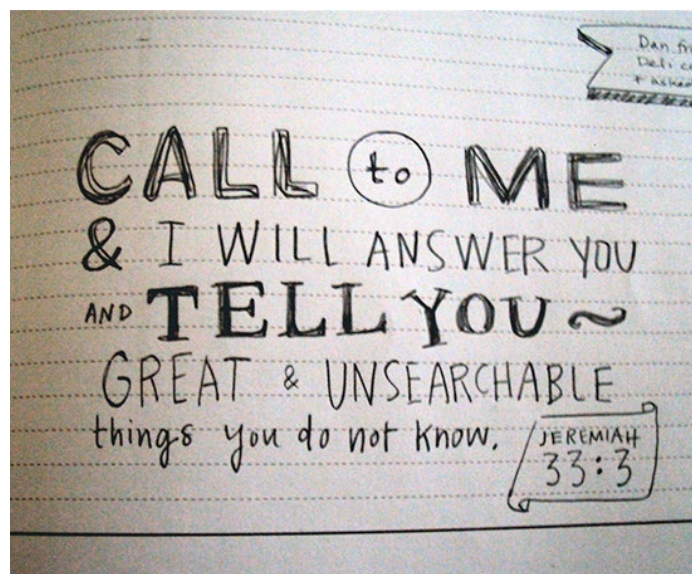 Dan
Deli
+ asked
CALL to ME
& I WILL ANSWER YOU
AND TELL YOU ~
GREAT & UNSEARCHABLE
things you do not know.
JEREMIAH
33:3